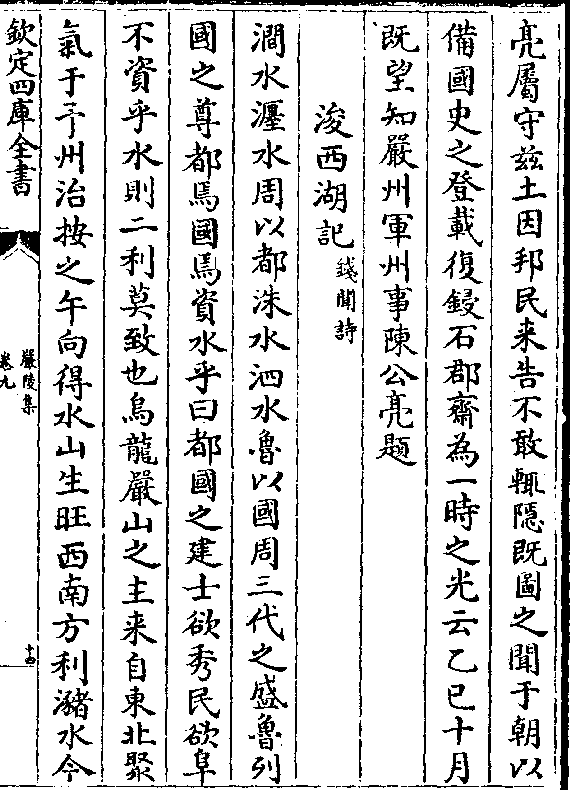 亮屬守兹土因邦民来告不敢輒隠既圖之聞于朝以
備國史之登載復鋟石郡齋為一時之光云乙巳十月
既望知嚴州軍州事陳公亮題
浚西湖記 錢聞詩
澗水瀍水周以都洙水泗水魯以國周三代之盛魯列
國之尊都焉國焉資水乎曰都國之建士欲秀民欲阜
不資乎水則二利莫致也烏龍嚴山之主来自東北聚
氣于子州治按之午向得水山生旺西南方利瀦水今
欽定四庫全書
嚴陵集
卷九
十四